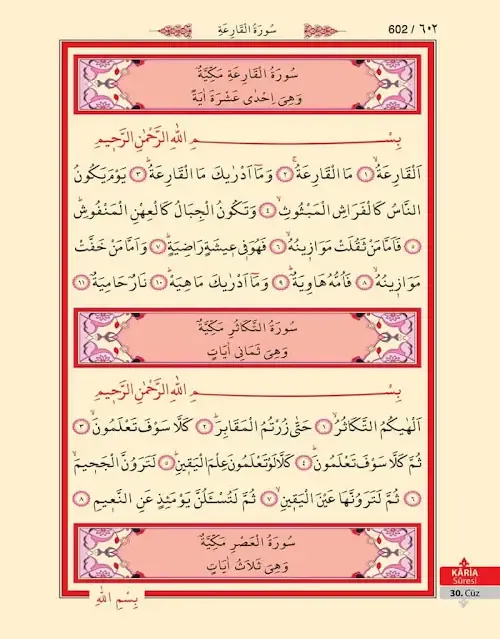 سُورَةُ الْقَارِعَةِ
602 / ٦٠٢
سُورَةُ الْقَارِعَةِ مَكِّيَّةٌ
وَهِيَ اِحْدٰى عَشْرَةَ اٰيَةً
بِسْمِ اللّٰهِ الرَّحْمٰنِ الرَّحِيمِ
اَلْقَارِعَةُۙ ﴿١﴾ مَا الْقَارِعَةُۚ ﴿٢﴾ وَمَٓا اَدْرٰيكَ مَا الْقَارِعَةُۜ ﴿٣﴾ يَوْمَ يَكُونُ
النَّاسُ كَالْفَرَاشِ الْمَبْثُوثِۙ ﴿٤﴾ وَتَكُونُ الْجِبَالُ كَالْعِهْنِ الْمَنْفُوشِۜ
﴿٥﴾ فَاَمَّا مَنْ ثَقُلَتْ مَوَازِينُهُۙ ﴿٦﴾ فَهُوَ فِي عِيشَةٍ رَاضِيَةٍۜ ﴿٧﴾ وَاَمَّا مَنْ خَفَّتْ
مَوَازِينُهُۙ ﴿٨﴾ فَاُمُّهُ هَاوِيَةٌۜ ﴿٩﴾ وَمَٓا اَدْرٰيكَ مَاهِيَهْۜ ﴿١٠﴾ نَارٌ حَامِيَةٌ ﴿١١﴾
سُورَةُ التَّكَاثُرِ مَكِّيَّةٌ
وَهِيَ ثَمَانِي اٰيَاتٍ
بِسْمِ اللّٰهِ الرَّحْمٰنِ الرَّحِيمِ
اَلْهٰيكُمُ التَّكَاثُرُۙ ﴿١﴾ حَتّٰى زُرْتُمُ الْمَقَابِرَۜ ﴿٢﴾ كَلَّا سَوْفَ تَعْلَمُونَۙ ﴿٣﴾
ثُمَّ كَلَّا سَوْفَ تَعْلَمُونَۜ ﴿٤﴾ كَلَّا لَوْ تَعْلَمُونَ عِلْمَ الْيَقِينِۜ ﴿٥﴾ لَتَرَوُنَّ الْجَحِيمَۙ
﴿٦﴾ ثُمَّ لَتَرَوُنَّهَا عَيْنَ الْيَقِينِۙ ﴿٧﴾ ثُمَّ لَتُسْـَٔلُنَّ يَوْمَئِذٍ عَنِ النَّعِيمِ ﴿٨﴾
سُورَةُ الْعَصْرِ مَكِّيَّةٌ
وَهِيَ ثَلَاثُ اٰيَاتٍ
بِسْمِ اللّٰهِ
KÂRİA
Sûresi
30. Cüz